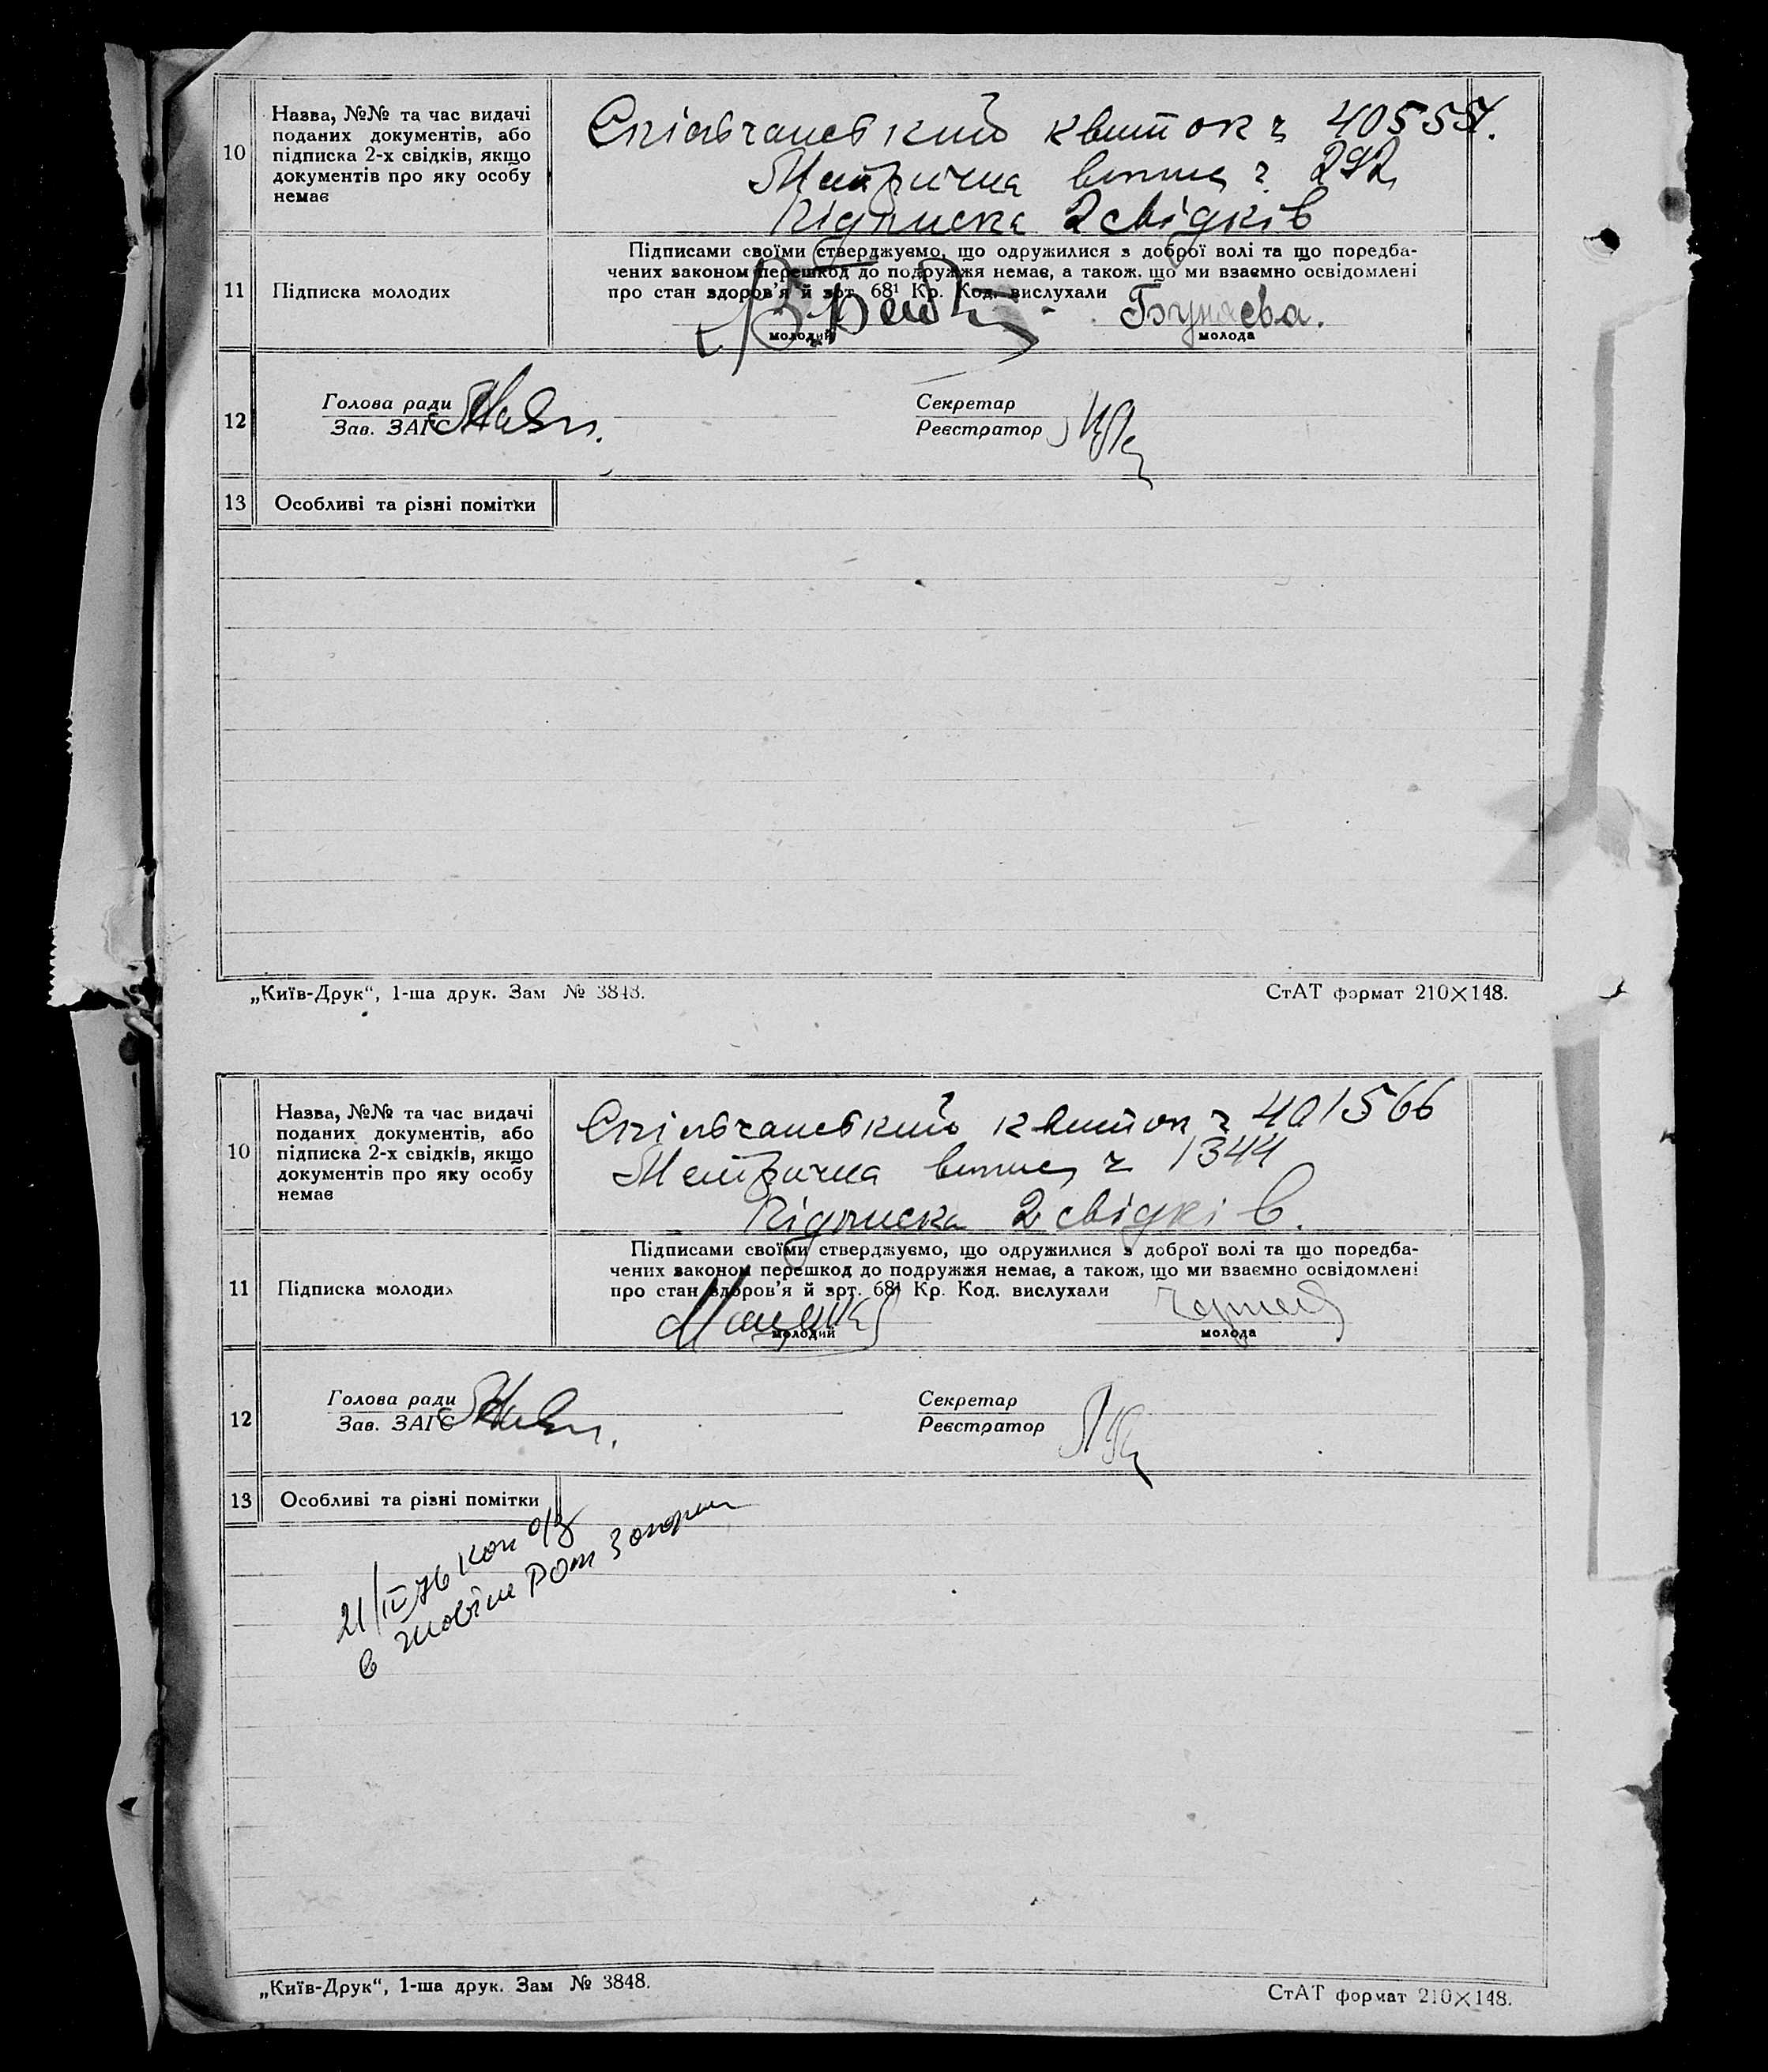 10
Назва, №№ та час видачі
поданих документів, або
підписка 2-х свідків, якщо
документів про яку особу
немає
Спілчанський квиток ч 40555
Метрична випись ч. 292
Підписка 2 свідків
11
Підписка молодих
Підписами своїми стверджуємо, що одружилися з доброї волі та що поредба-
чених законом перешкод до подружжя немає, а також, що ми взаємно освідомлені
про стан здоров'я й арт. 68¹ Кр. Код. вислухали
молодий
молода
12
Голова ради
Зав. ЗАГС
Секретар
Реєстратор
13
Особливі та різні помітки
„Київ-Друк“, 1-ша друк. Зам № 3848.
СтАТ формат 210×148.
10
Назва, №№ та час видачі
поданих документів, або
підписка 2-х свідків, якщо
документів про яку особу
немає
Спілчанський квиток ч 401566
Метрична випись ч 1344
Підписка 2 свідків.
11
Підписка молодих
Підписами своїми стверджуємо, що одружилися з доброї волі та що поредба-
чених законом перешкод до подружжя немає, а також, що ми взаємно освідомлені
про стан здоров'я й арт. 68¹ Кр. Код. вислухали
молодий
молода
12
Голова ради
Зав. ЗАГС
Секретар
Реєстратор
13
Особливі та різні помітки
21/IV 76
в
„Київ-Друк“, 1-ша друк. Зам № 3848.
СтАТ формат 210×148.